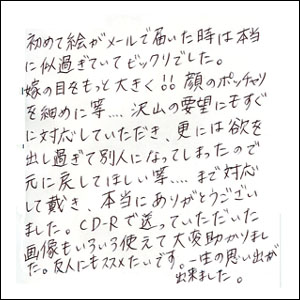 初めて絵がメールで届いた時は本当
に似過ぎていてビックリでした。
嫁の目をもっと大きく!! 顔のポッチャリ
を細めに等.... 沢山の要望にもすぐ
に対応していただき、更には欲を
出し過ぎて別人になってしまったので
元に戻してほしい等.... まで対応
して戴き、本当にありがとうござい
ました。CD-Rで送っていただいた
画像もいろいろ使えて大変助かりまし
た。友人にもススメたいです。一生の思い出が
出来ました。